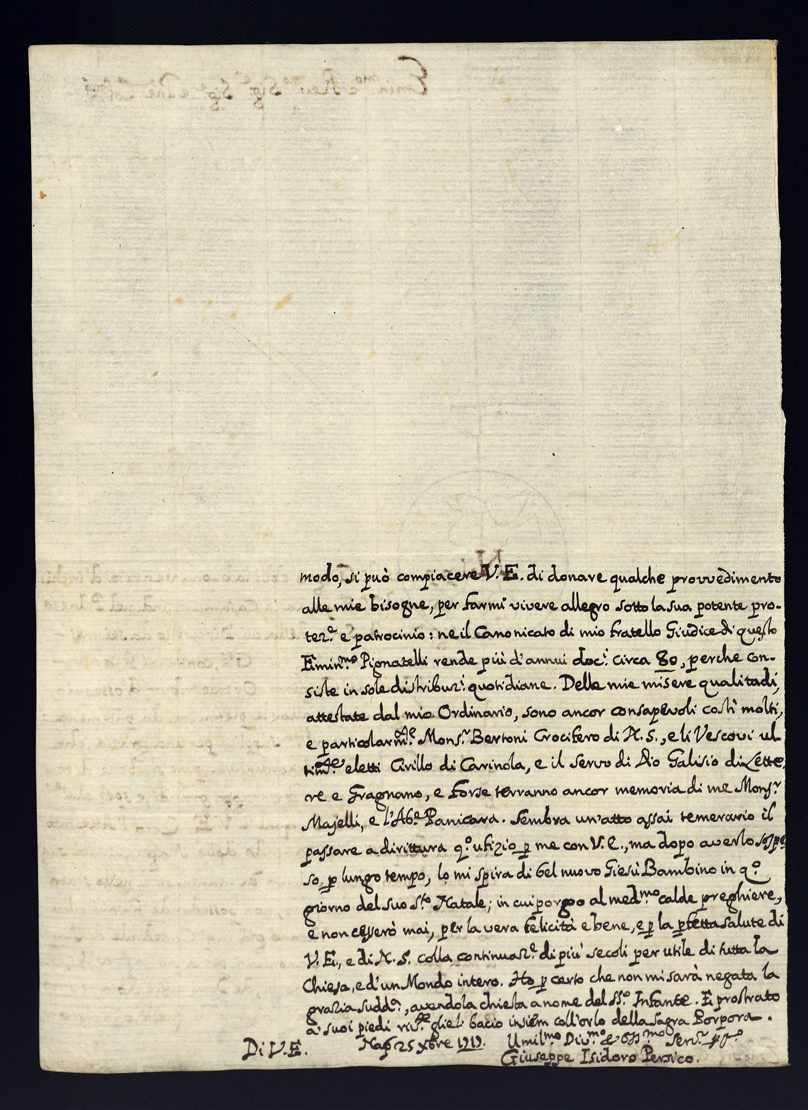 modo, si può compiacere V. E. di donare qualche provvedimento
alle mie bisogne, per farmi vivere allegro sotto la sua potente pro-
tez.e e patrocinio: ne il Canonicato di mio fratello Giudice di questo
Emin.mo Pignatelli rende più d'annui doc.i circa 80, perche con-
siste in sole distribuz.i quotidiane. Delle mie misere qualitadi,
attestate dal mio Ordinario, sono ancor consapevoli costì molti,
e particolarm.te Mons.r Bertoni Crocifero di N. S., e li Vescovi ul
tim.te eletti Cirillo di Carinola, e il servo di Dio Galisio di Lette
re e Gragnano, e forse terranno ancor memoria di me Mons.r
Majelli, e l'Ab.e Panicara. Sembra un'atto assai temerario il
passare a dirittura q.o ufizio p me con V. E., ma dopo averlo sospe
so, p lungo tempo, lo mi spira di bel nuovo Giesù Bambino in q.o
giorno del suo S.to Natale; in cui porgoo al med.mo calde preghiere,
e non cesserò mai, per la vera felicità e bene, e p la pfetta salute di
V. E., e di N. S. colla continuaz.e di più secoli per utile di tutta la
Chiesa, e d'un Mondo intero. Ho p certo che non mi sarà negata la
grazia sudd.a, avendola chiesta a nome del SS.o Infante. E prostrato
a' suoi piedi riv.te glieli bacio insiem coll'orlo della sagra Porpora.
Di V. E. Nap. 25 Xbre Umil.mo Div.mo & Obb.mo Serv.r
Giuseppe Isidoro Persico.